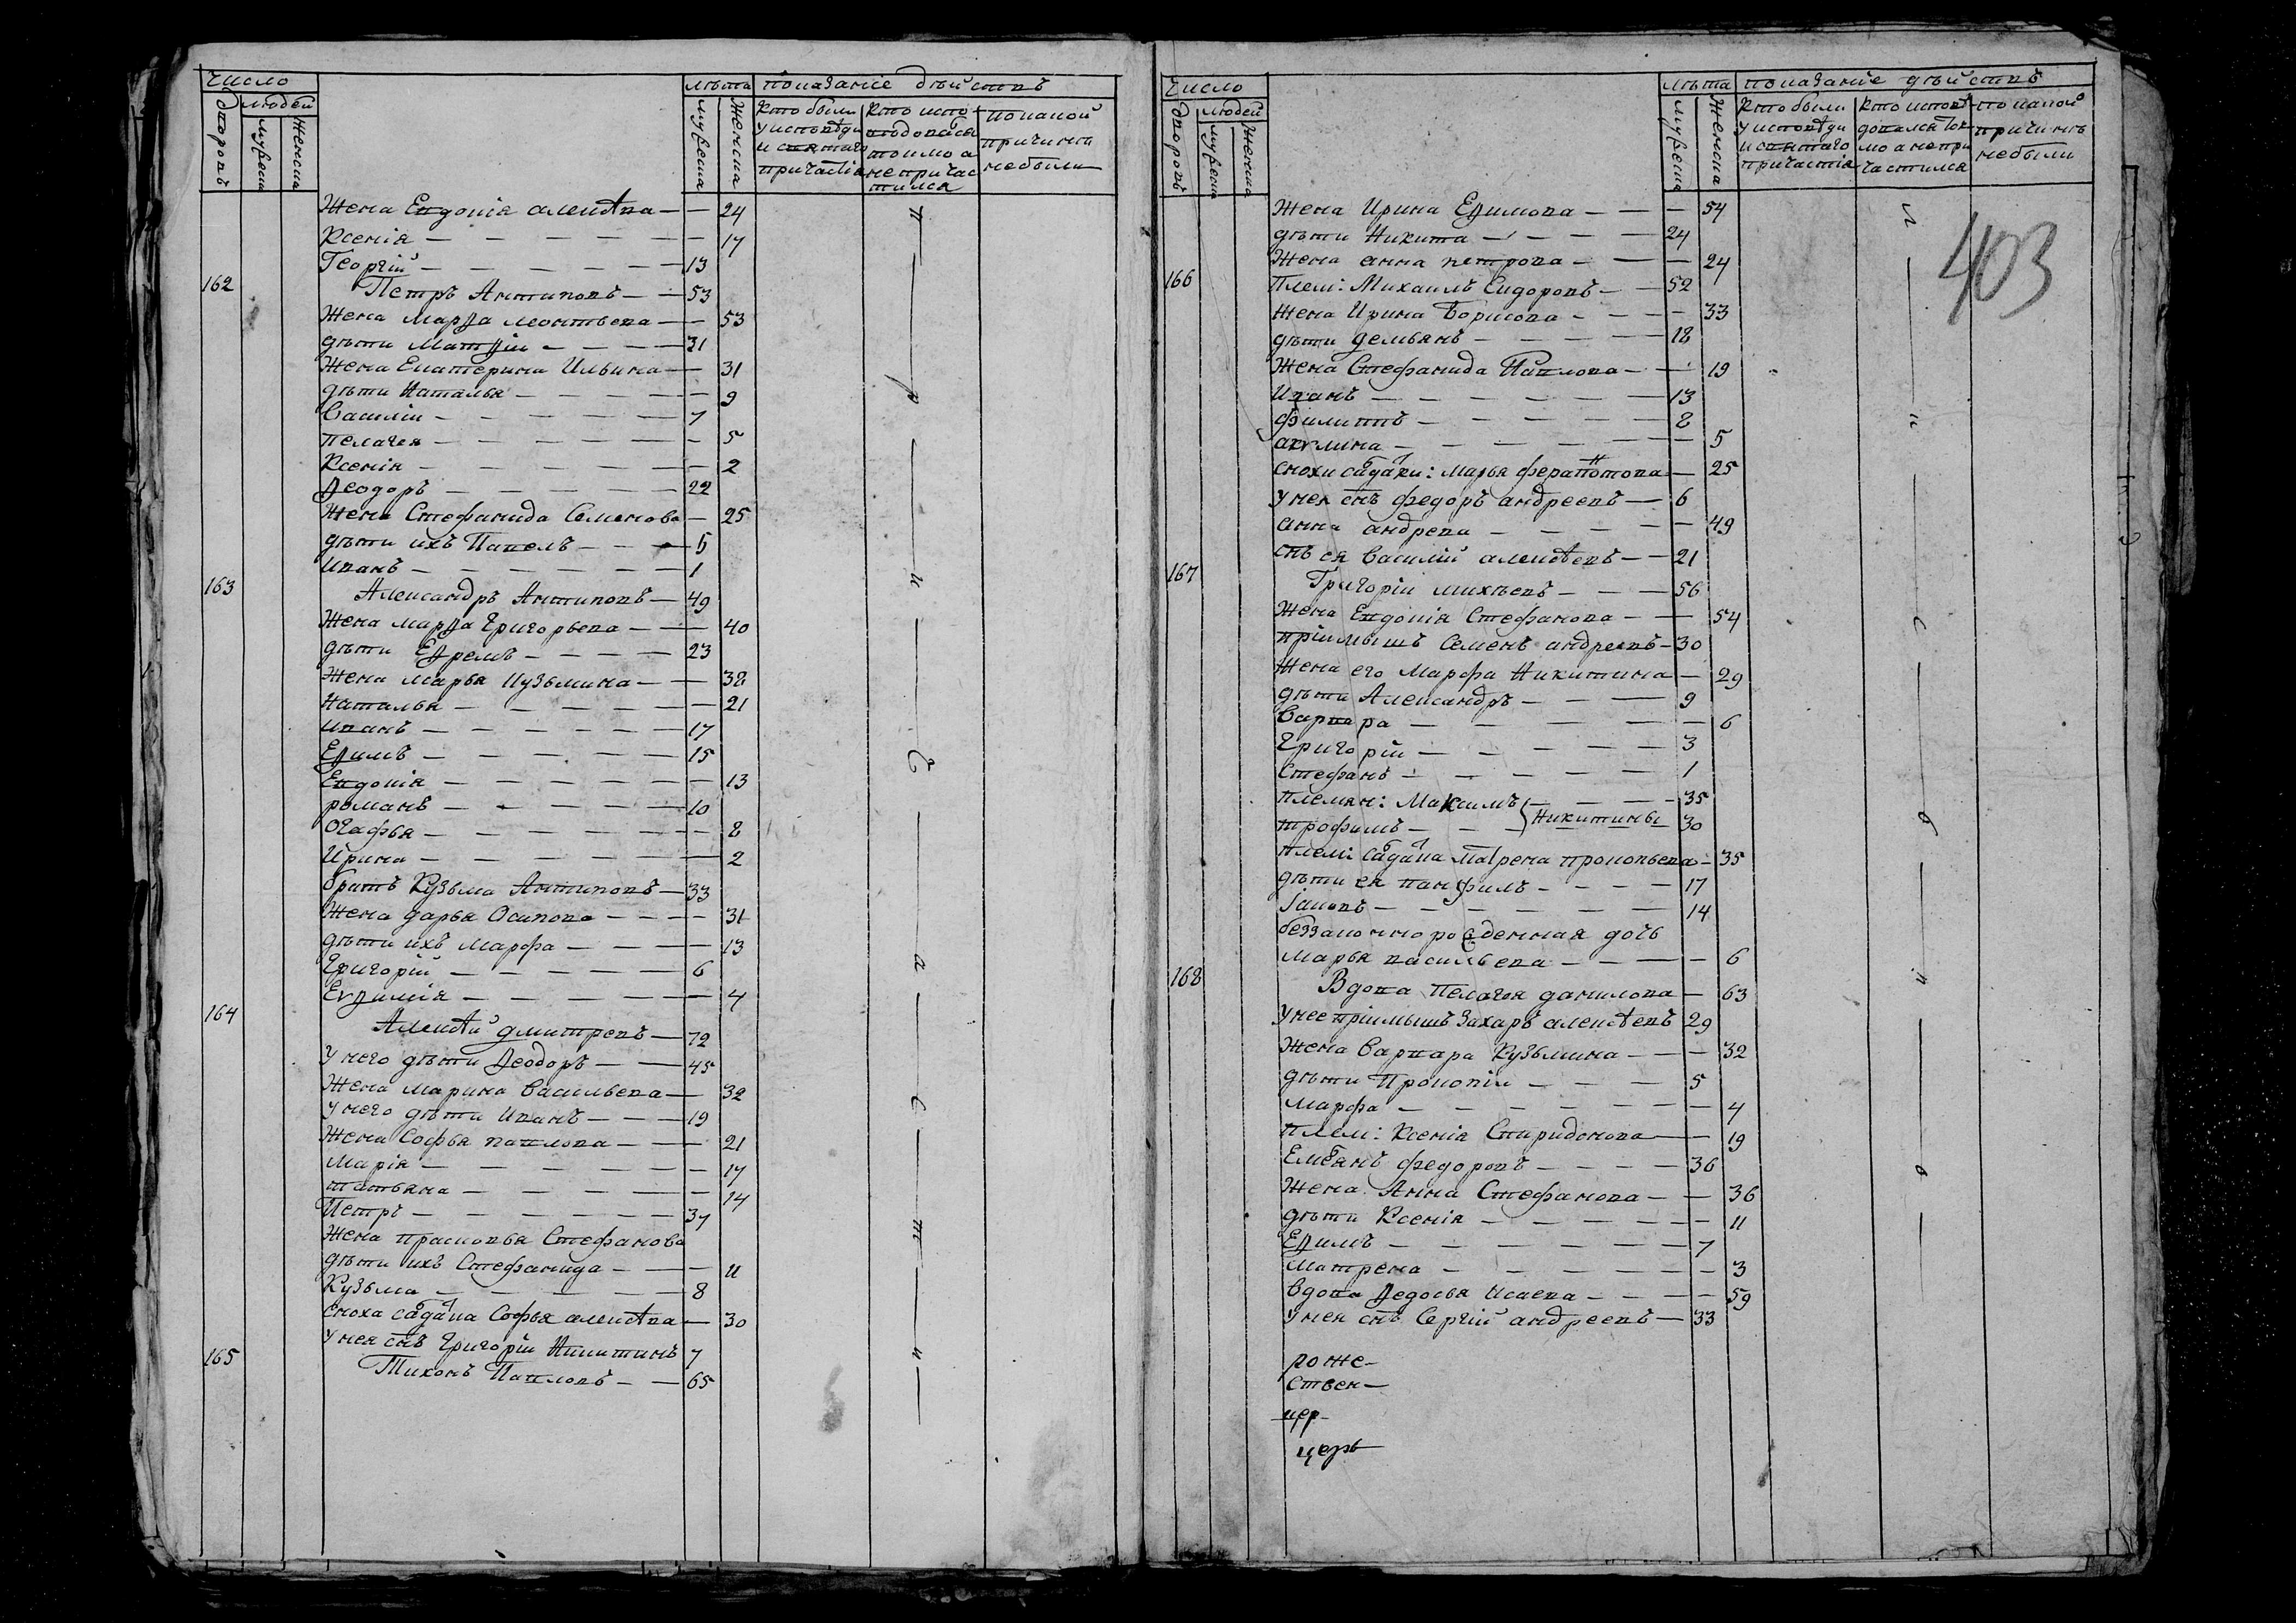 число
дворовъ
людей
мужеска
женска
лѣта
мужеска
женска
показаніе дѣйствъ
кто были у исповѣди и святаго причастія
кто исповѣдовался токмо а непричастился
по какой причинѣ небыли
Жена Евдокія алексѣва — — 24
Ксенія — — — — — — 17
Георгій — — — — — 13
162 Петръ Антиповъ — — 53
Жена Марѳа леонтьева — — 53
дѣти Матѳіи — — — — 31
Жена Екатерина Ильина — — 31
дѣти Наталья — — — — 9
Василіи — — — — — 7
пелагея — — — — — — 5
Ксенія — — — — — — 2
Ѳеодоръ — — — — — 22
Жена Стефанида Семенова — 25
дѣти ихъ Павелъ — — — 5
Иванъ — — — — — — 1
163 Александръ Антиповъ — 49
Жена марѳа григорьева — — 40
дѣти Еѳремъ — — — — 23
Жена марья кузьмина — — 38
Наталья — — — — — — 21
иванъ — — — — — — 17
Еѳимъ — — — — — — 15
Евдокія — — — — — — 13
романъ — — — — — 10
Огафья — — — — — — 8
Ирина — — — — — — 2
братъ Кузьма Антиповъ — 33
Жена дарья Осипова — — — — 31
дѣти ихъ марфа — — — — 13
григорій — — — — — 6
Еѵѳимія — — — — — — 4
164 Алексѣй дмитревъ — 72
у него дѣти Ѳеодоръ — — 45
Жена марина васильева — — 32
у него дѣти иванъ — — — 19
Жена Софья павлова — — — 21
марія — — — — — — 17
татьяна — — — — — — 14
Петръ — — — — — — 37
Жена прасковья Стефанова
дѣти ихъ Стефанида — — — 11
Кузьма — — — — — — 8
сноха салдатка Софья алексѣва — 30
у нея снъ григоріи никитинъ 7
165 Тихонъ Павловъ — — 65
п — р — и — С — а — с — т — и —
число
дворовъ
людей
мужеска
женска
лѣта
мужеска
женска
показаніе дѣйствъ
кто были у исповѣди и святаго причастія
кто исповѣдовался токмо а непричастился
по какой причинѣ небыли
403
Жена Ирина Еѳимова — — — 54
дѣти Никита — — — — 24
Жена анна петрова — — — 24
166 Плем: Михаилъ Сидоровъ — — 52
Жена Ирина борисова — — — — 33
дѣти демьянъ — — — — — 18
Жена Стефанида Павлова — — 19
Иванъ — — — — — — 13
филиппъ — — — — — 8
акулина — — — — — — 5
снохи салдатки: марья ферапонтова — 25
у нея снъ федоръ андреевъ — 6
анна андрева — — — — — 49
снъ ея василій алексѣевъ — — 21
167 Григоріи михѣевъ — — — 56
Жена Евдокія Стефанова — — 54
пріимышъ семенъ андреевъ — 30
Жена его марфа никитина — 29
дѣти Александръ — — — 9
варвара — — — — — — 6
григоріи — — — — — 3
Стефанъ — — — — — 1
племян: максимъ — — — — 35
трофимъ — — — } никитины 30
плем: салдатка матрена прокопьева — 35
дѣти ея панфилъ — — — — 17
Іаковъ — — — — — — 14
беззаконнорожденная дочь
марья васильева — — — — 6
168 Вдова пелагея данилова — 63
у нее пріимышъ Захаръ алексѣевъ 29
Жена варвара кузьмина — — — 32
дѣти Прокопіи — — — — 5
марфа — — — — — — — 4
плем: Ксенія Спиридонова — — 19
Емельянъ федоровъ — — — — 36
Жена Анна Стефанова — — 36
дѣти Ксенія — — — — — — 11
Еѳимъ — — — — — — 7
матрена — — — — — — — 3
вдова Ѳедосья Исаева — — — — 59
у нея снъ Сергій андреевъ — 33
роже—
ствен—
цер—
церв